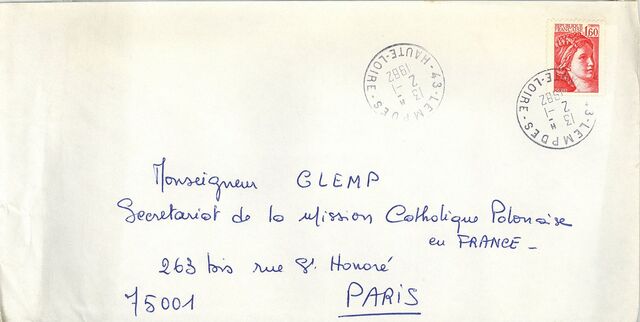 REPUBLIQUE FRANCAISE
1,60
43-LEMPDES-HAUTE-LOIRE-
13 H
2 -1
1982
43-LEMPDES-
HAUTE-LOIRE-
13 H
2 -1
1982
Monseigneur GLEMP
Secretariat de la Mission Catholique Polonaise
en FRANCE -
263 bis rue St. Honoré
75001 PARIS